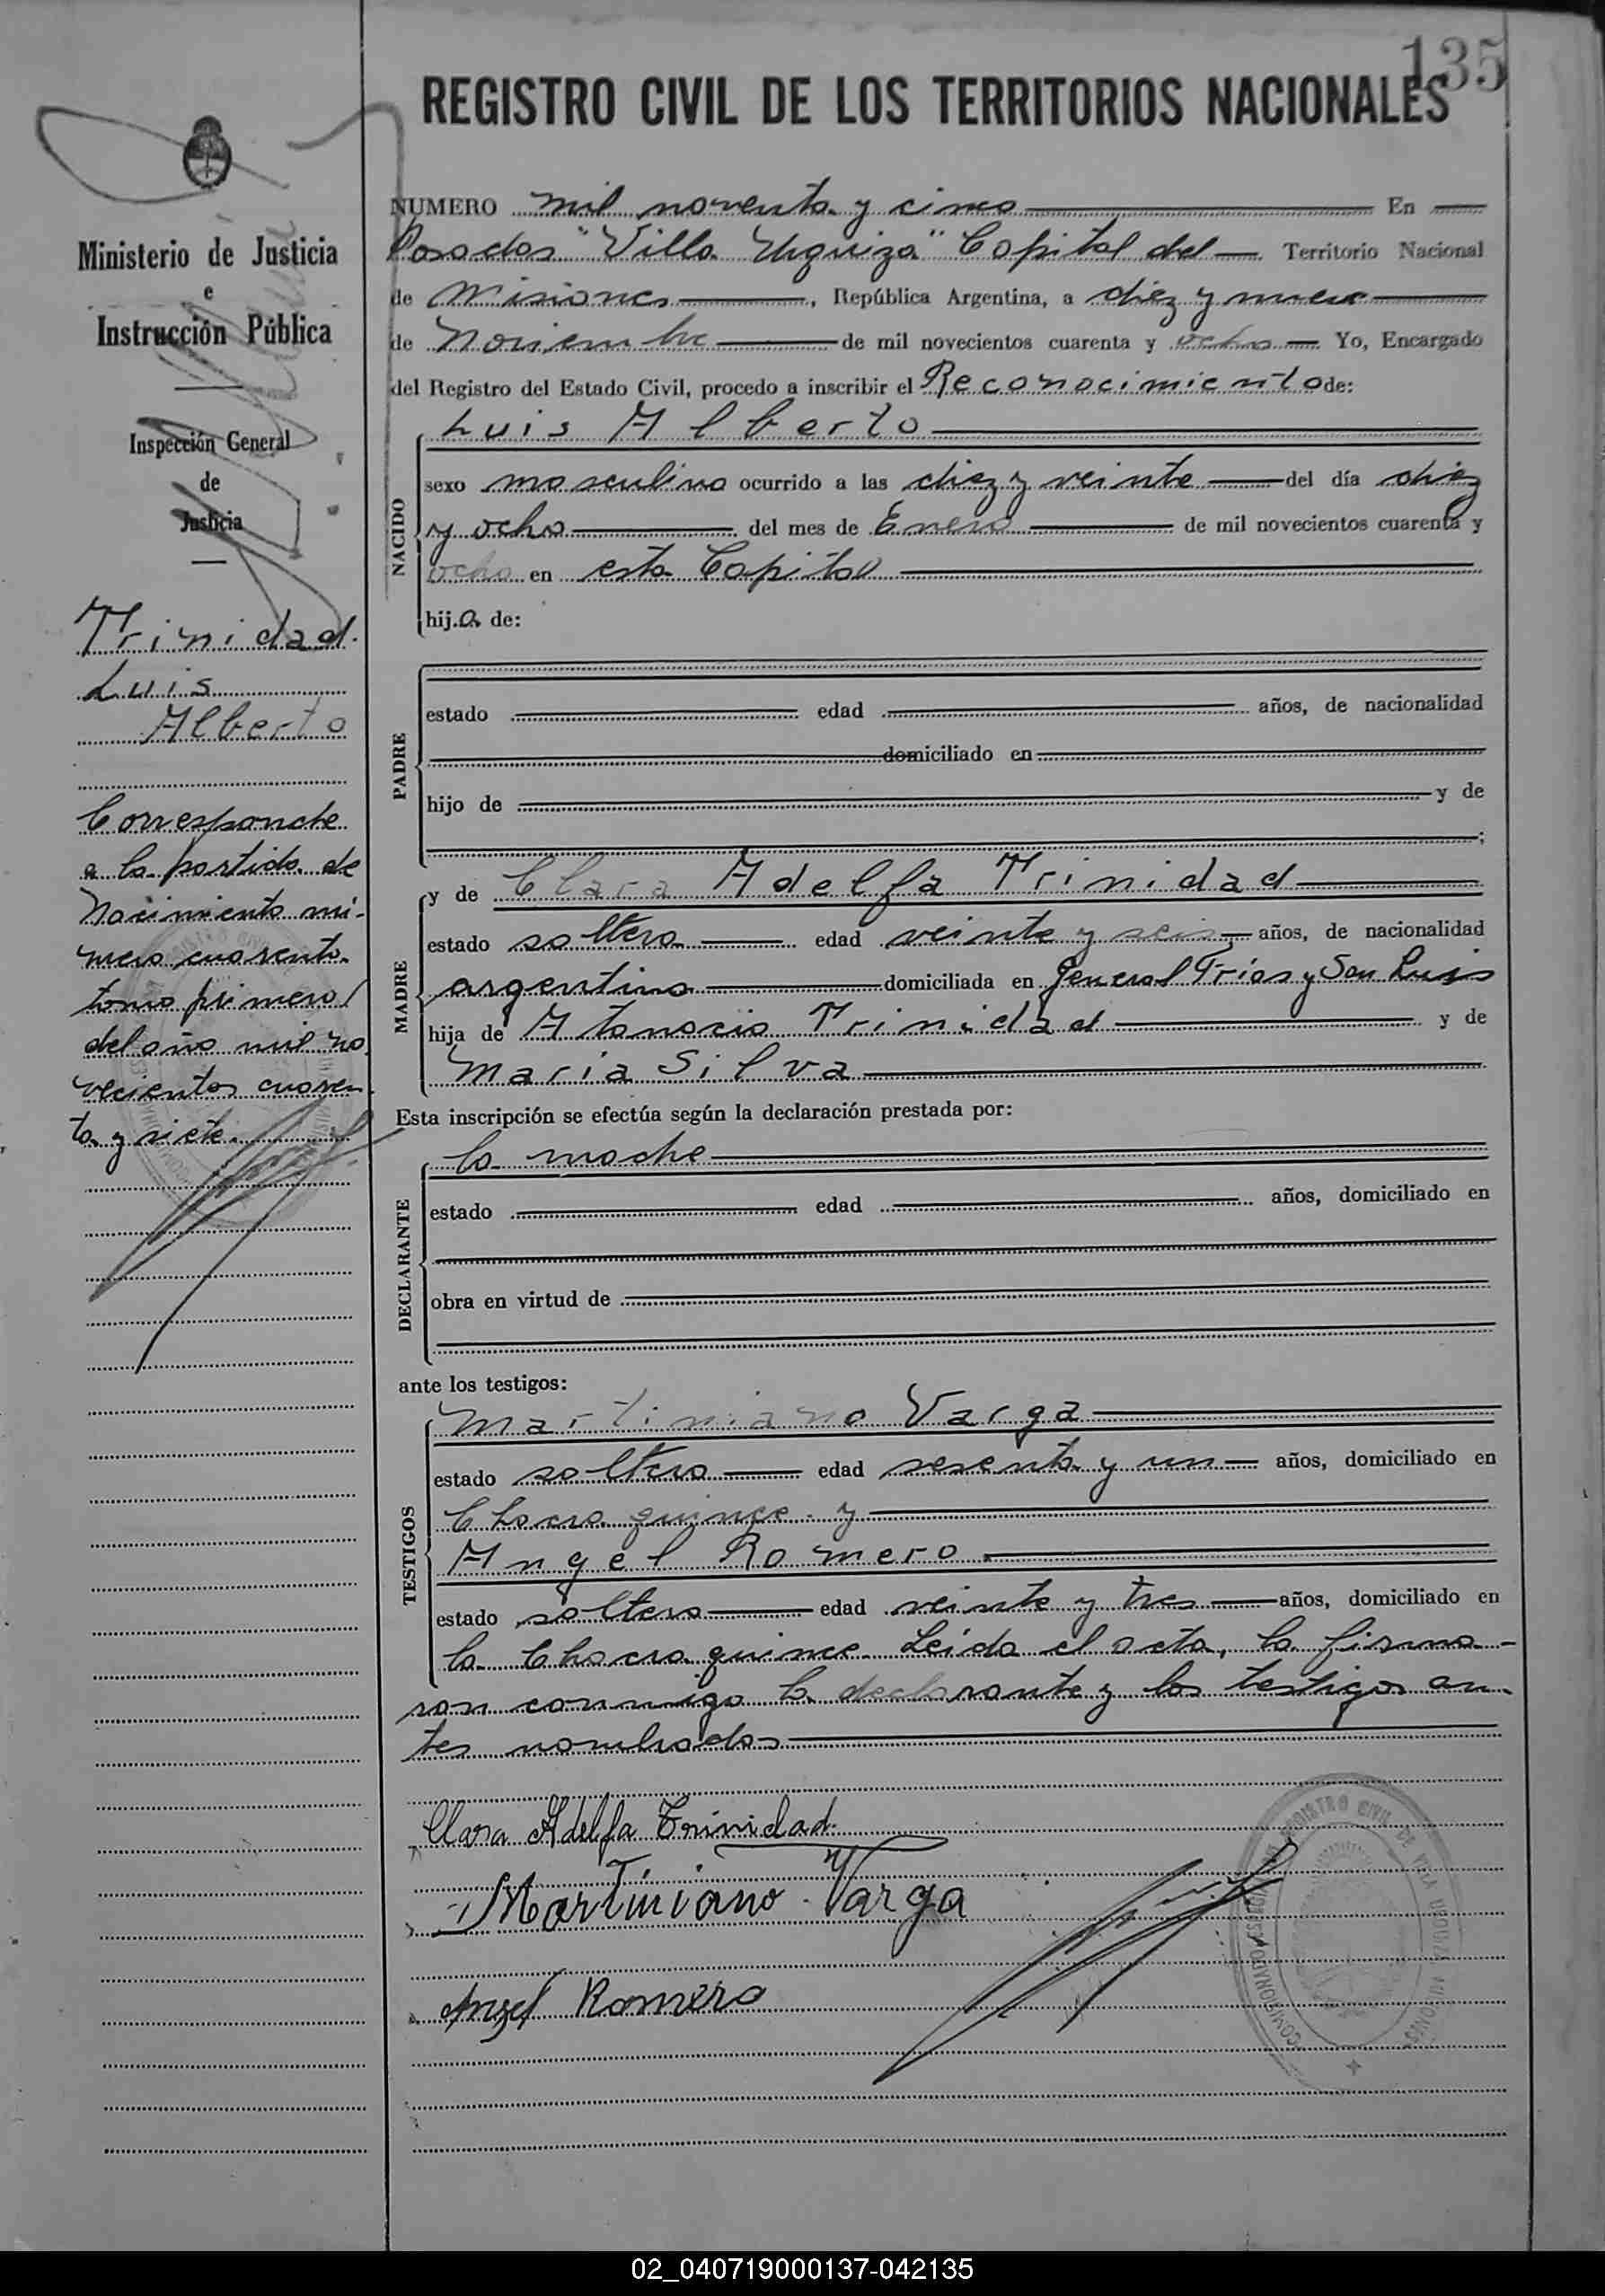 135
REGISTRO CIVIL DE LOS TERRITORIOS NACIONALES
Ministerio de Justicia
e
Instrucción Pública
Inspección General
de
Justicia
Trinidad
Luis
Alberto
Corresponde
a la partida de
Nacimiento nú-
mero cuarenta
tomo primero
del año mil no
vecientos cuaren
ta y siete.
NUMERO mil noventa y cinco En
Posadas "Villa Urquiza" Capital del Territorio Nacional
de Misiones, República Argentina, a diez y nueve
de Noviembre de mil novecientos cuarenta y ocho Yo, Encargado
del Registro del Estado Civil, procedo a inscribir el Reconocimiento de:
NACIDO
Luis Alberto
sexo masculino ocurrido a las diez y veinte del día diez
y ocho del mes de Enero de mil novecientos cuarenta y
ocho en esta Capital
hijo de:
PADRE
estado edad años, de nacionalidad
domiciliado en
hijo de y de
;
MADRE
y de Clara Adelfa Trinidad
estado soltera edad veinte y seis años, de nacionalidad
argentina domiciliada en General Frías y San Luis
hija de Atanacio Trinidad y de
Maria Silva
Esta inscripción se efectúa según la declaración prestada por:
DECLARANTE
la madre
estado edad años, domiciliado en
obra en virtud de
ante los testigos:
TESTIGOS
Martiniano Varga
estado soltero edad sesenta y un años, domiciliado en
Chacra quince y
Angel Romero
estado soltero edad veinte y tres años, domiciliado en
la Chacra quince. Leída el acta, la firma-
ron conmigo la declarante y los testigos an-
tes nombrados
Clara Adelfa Trinidad
Martiniano Varga
Angel Romero
REGISTRO CIVIL DE VILLA URQUIZA MISIONES
02_040719000137-042135